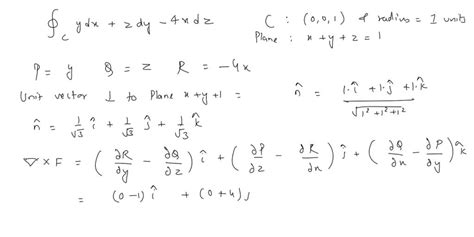 ∮_C y dx + z dy - 4x dz    C : (0,0,1) & radius = 1 units
Plane : x + y + z = 1
P = y    Q = z    R = -4x
Unit vector ⊥ to Plane x+y+1 =    n̂ = (1·î + 1·ĵ + 1·k̂) / √(1²+1²+1²)
n̂ = 1/√3 î + 1/√3 ĵ + 1/√3 k̂
▽×F = (∂R/∂y - ∂Q/∂z) î + (∂P/∂z - ∂R/∂x) ĵ + (∂Q/∂x - ∂P/∂y) k̂
= (0-1) î + (0+4) j